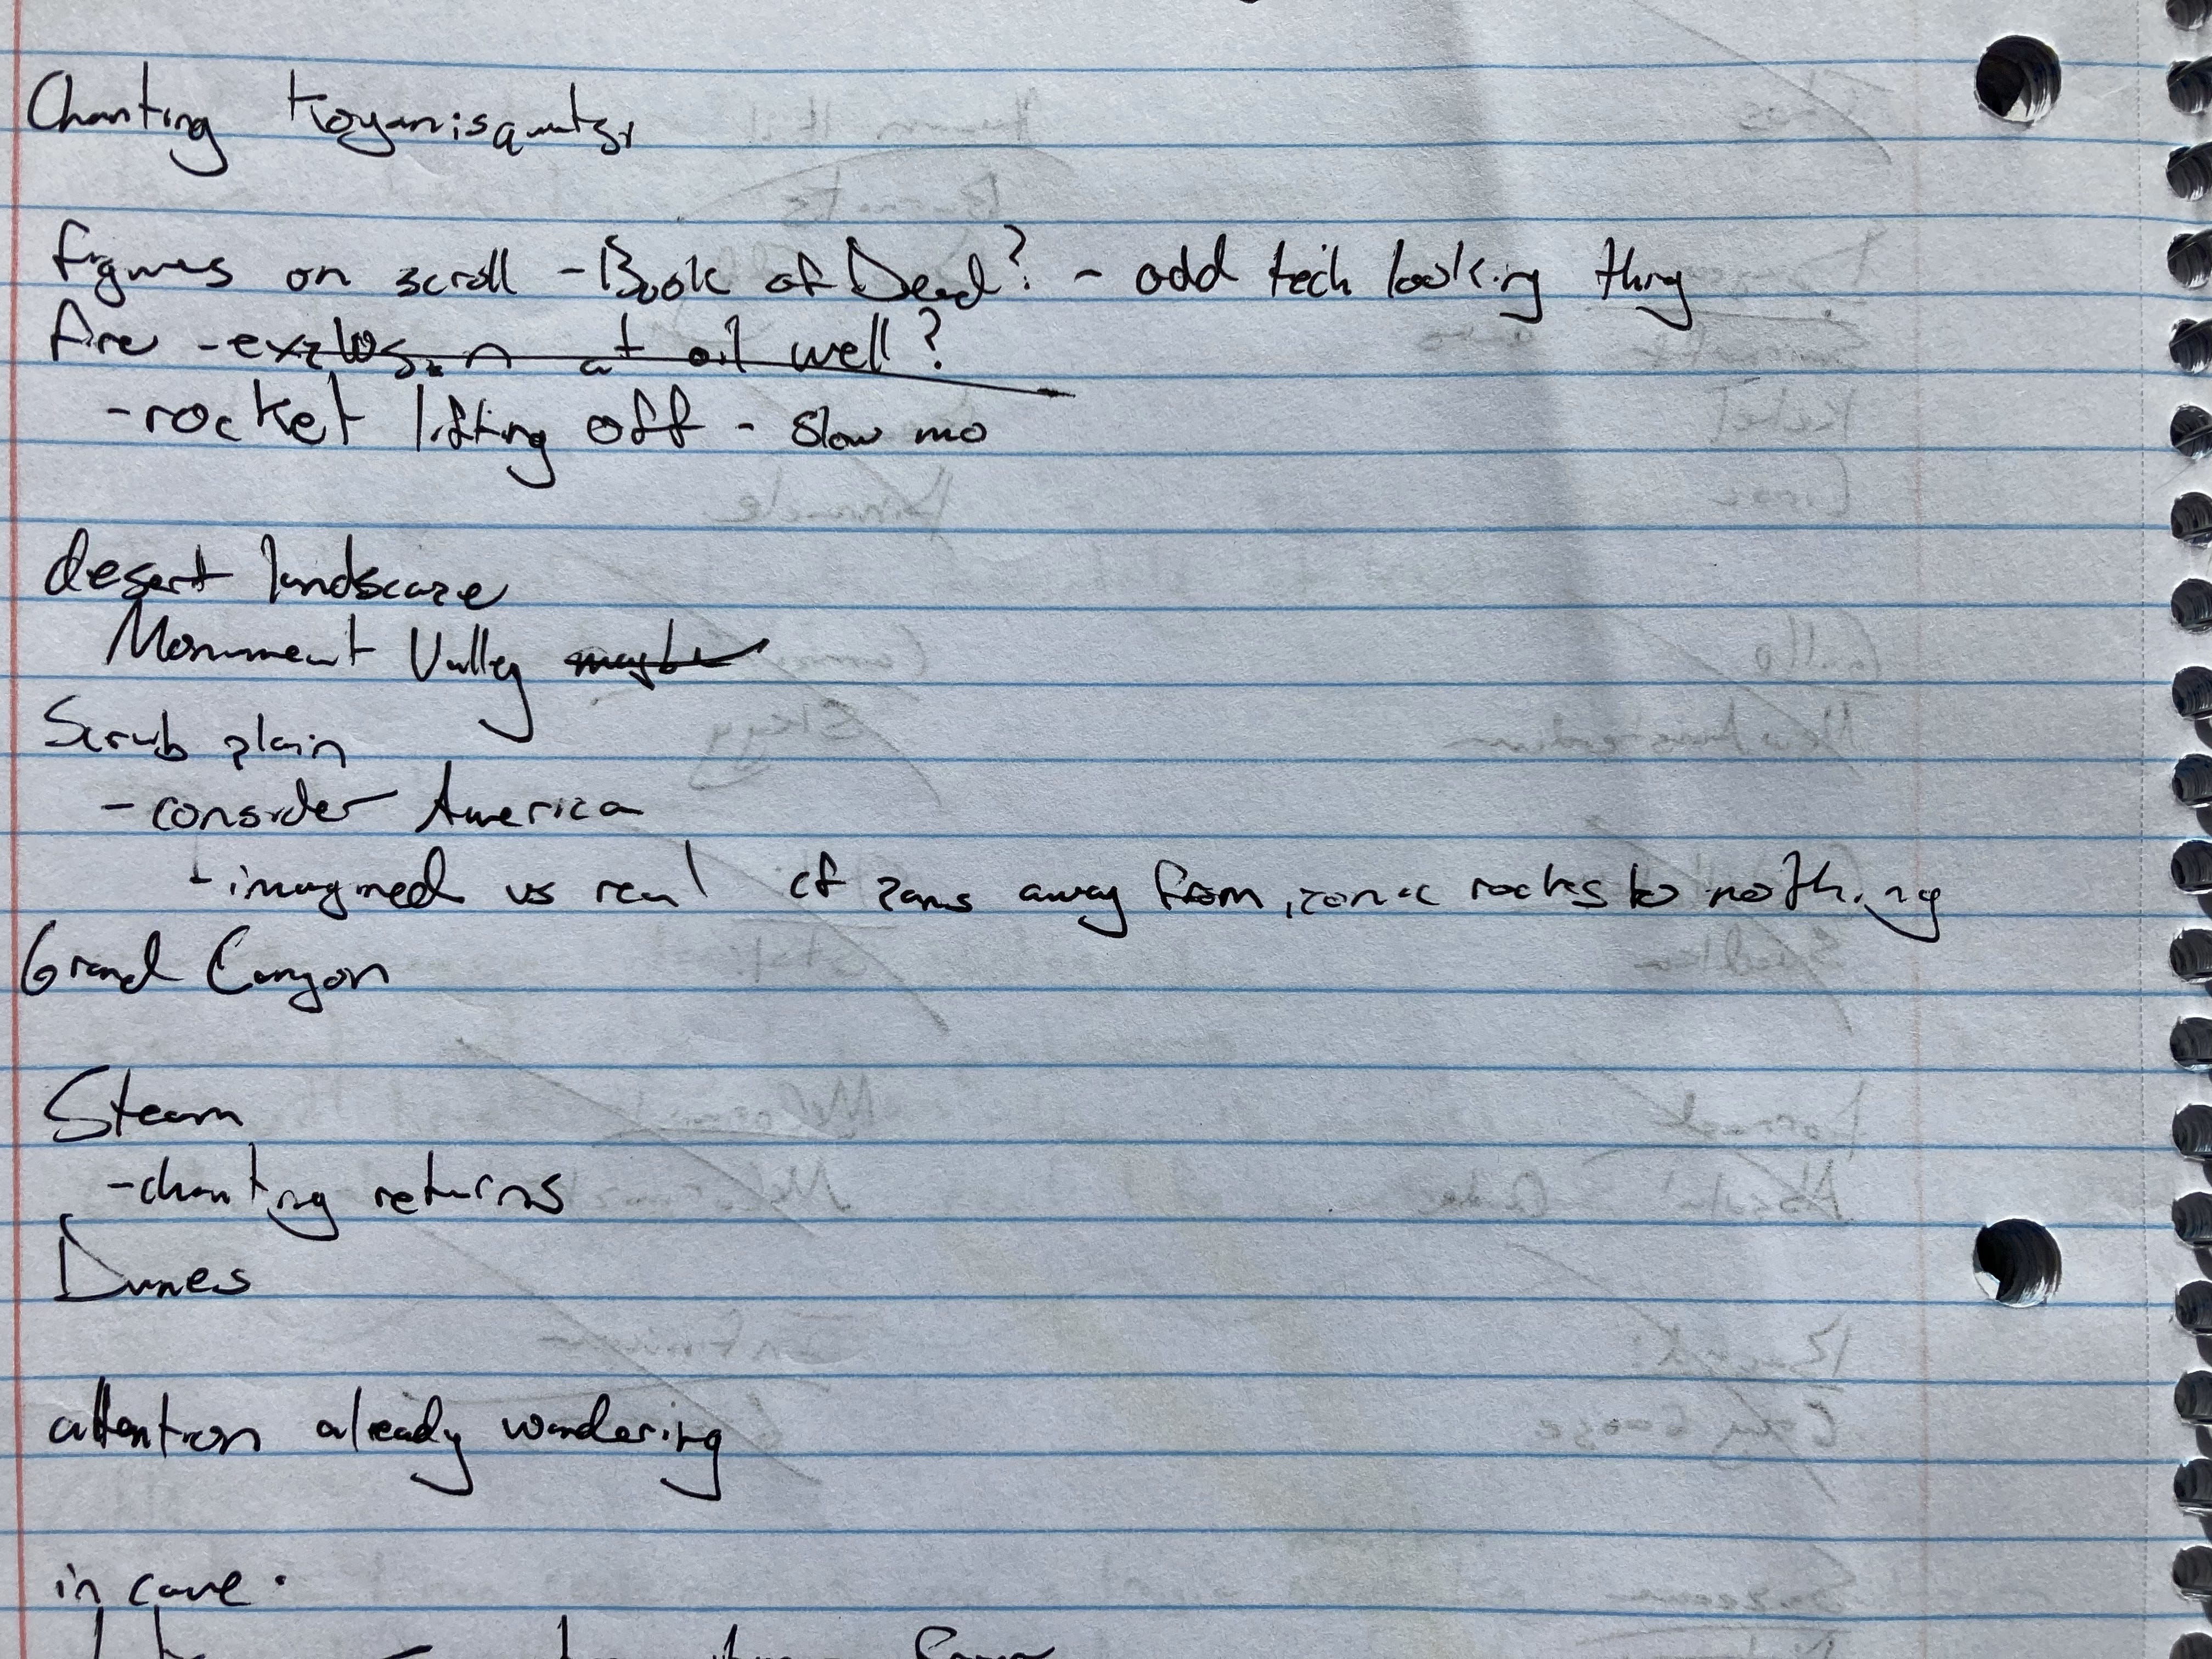 Chanting Koyanisquatsi
figures on scroll - Book of Dead? - odd tech looking thing
fire - explosion at oil well?
- rocket lifting off - slow mo
desert landscape
Monument Valley maybe
Scrub plain
- consider America
- imagined vs real cf pans away from iconic rocks to nothing
Grand Canyon
Steam
- chanting returns
Dunes
attention already wandering
in cave.